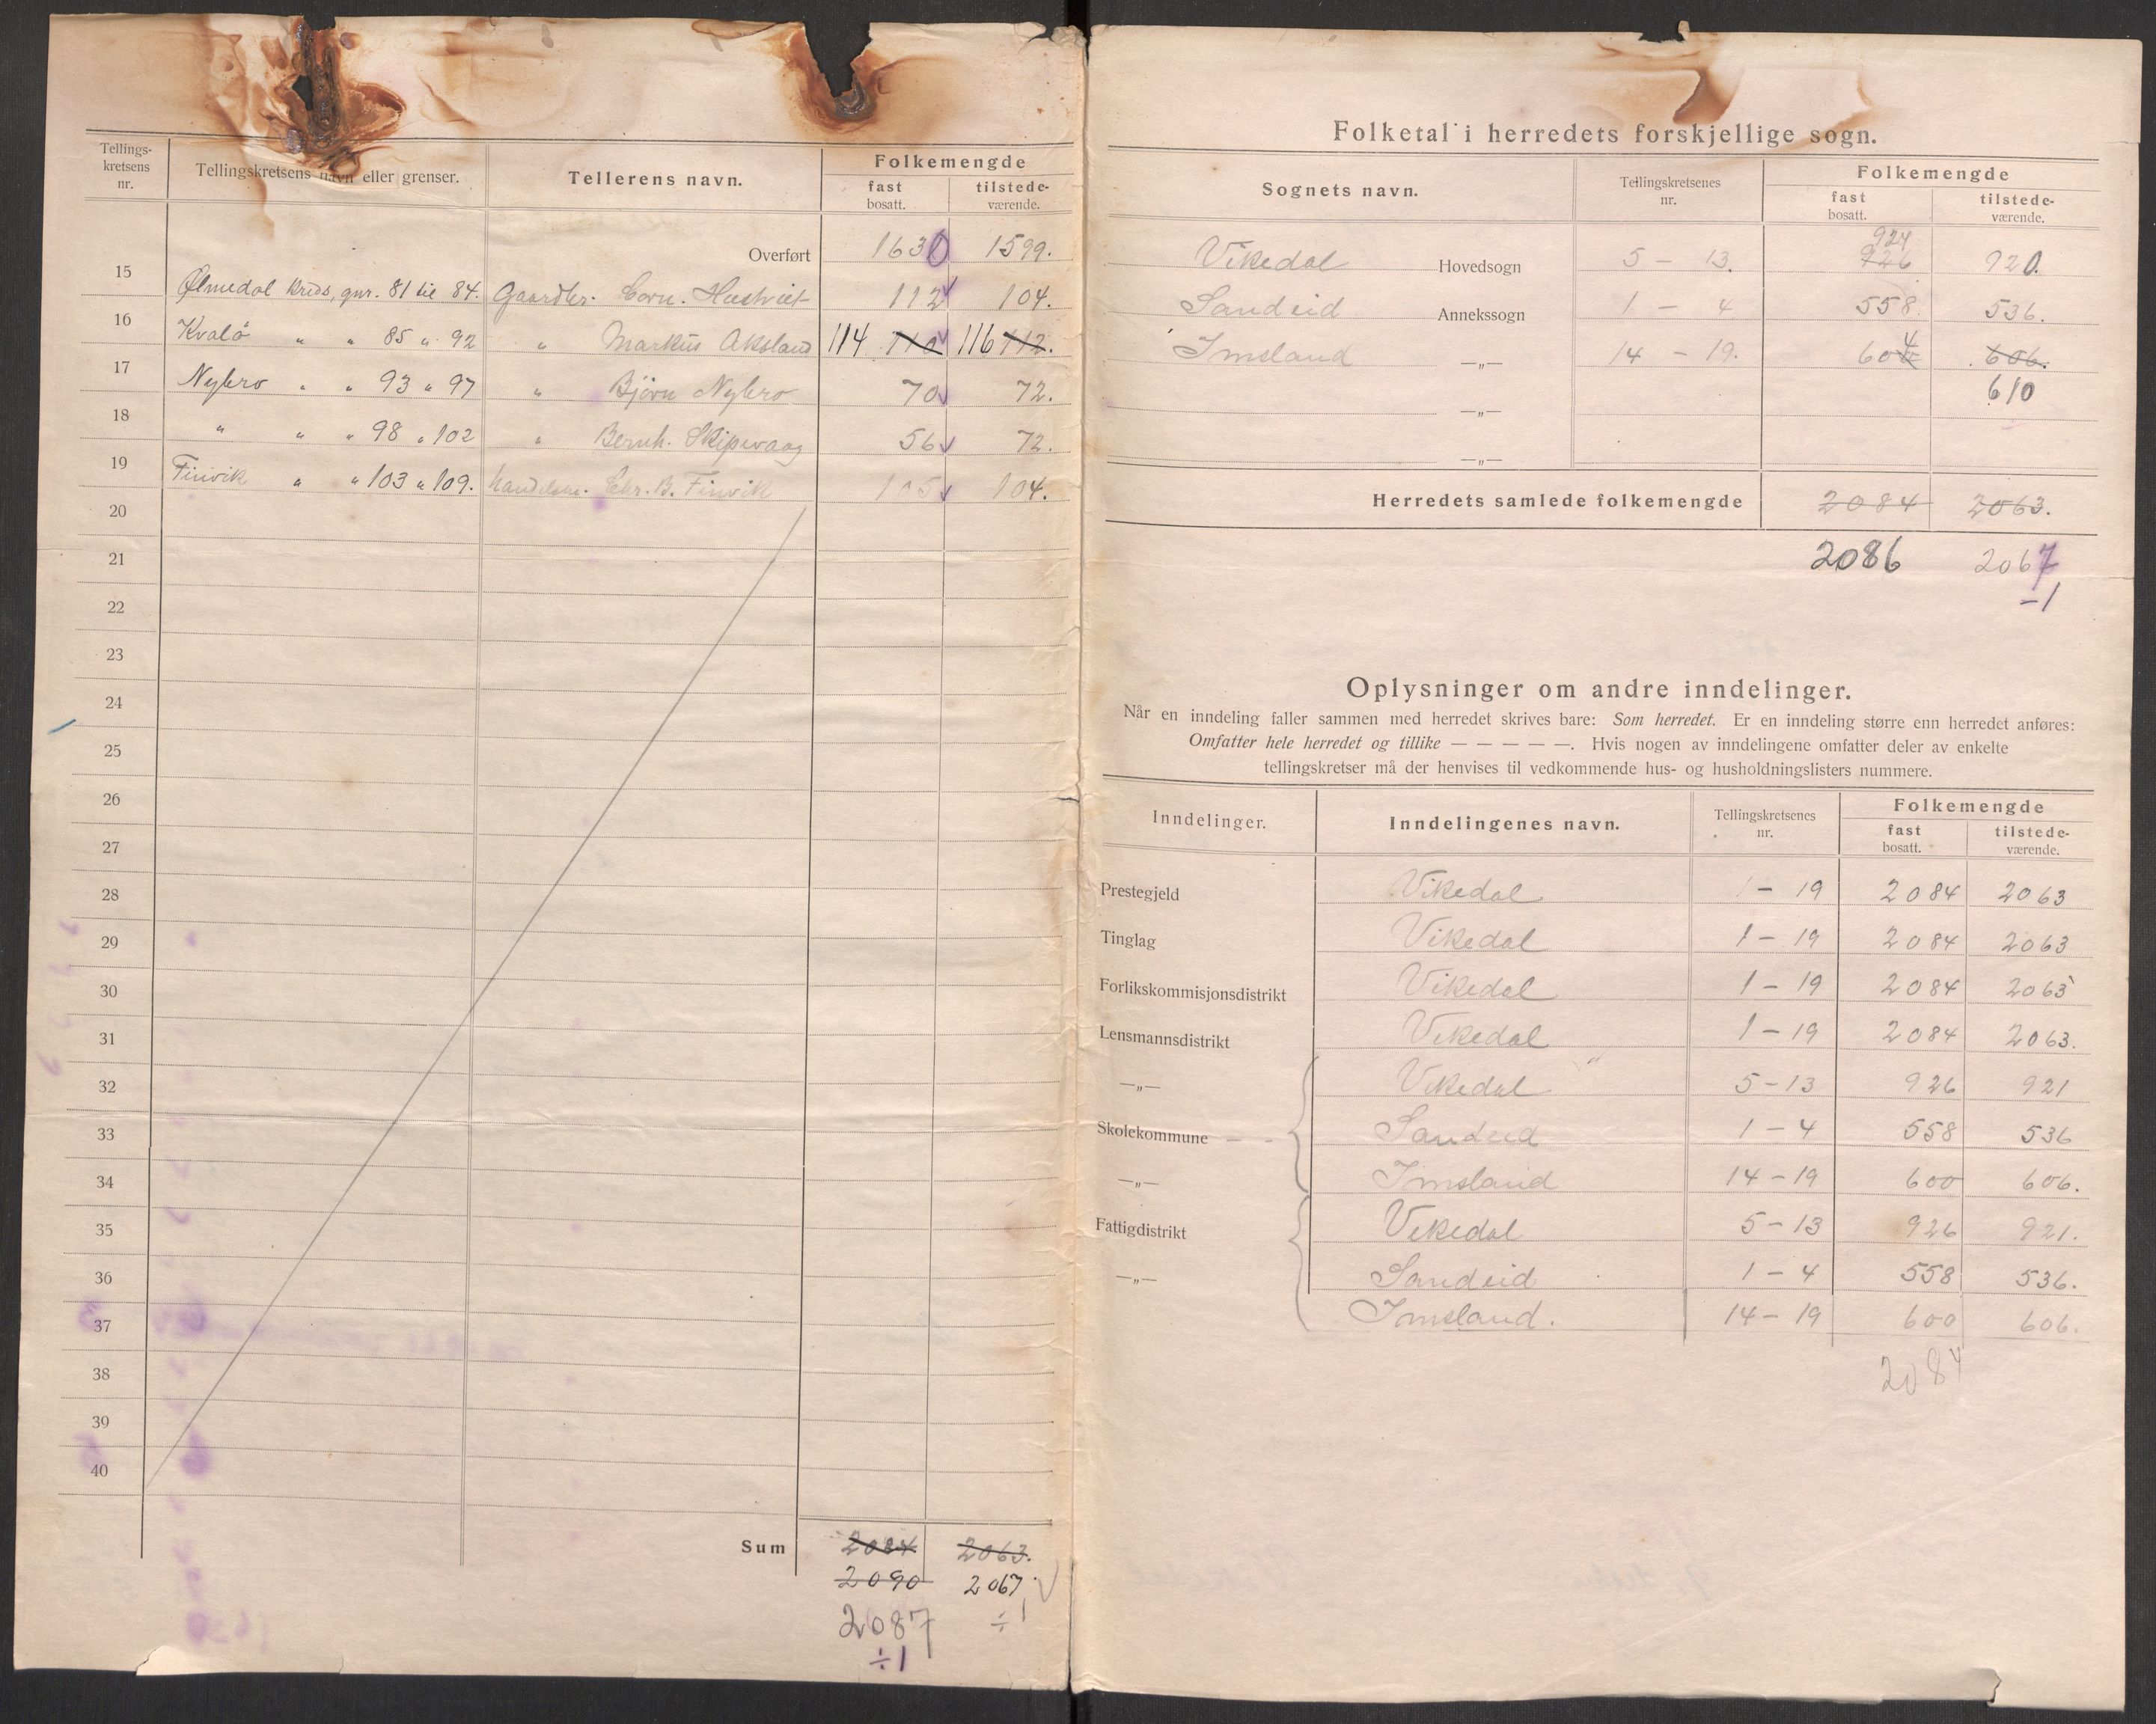 Tellings-
kretsens
nr.
Tellingskretsens navn eller grenser.
Tellerens navn.
Folkemengde
fast
bosatt.
tilstede-
værende.
Overført 1630 1599.
15 Ølmedal Kreds, gnr. 81 til 84. Gaardbr. Corn. Hustveit 112 104.
16 Kvalö " " 85 " 92 " Markus Aksland 114 110 116 112.
17 Nybro " " 93 " 97 " Björn Nybro 70 72.
18 " " " 98 " 102 " Bernh. Skipevaag 56 72.
19 Finvik " " 103 " 109. handelsm. Chr. B. Finvik 105 104.
20
21
22
23
24
25
26
27
28
29
30
31
32
33
34
35
36
37
38
39
40
Sum 2084 2063.
2090 2067
2087 ÷1
÷1
Folketal i herredets forskjellige sogn.
Sognets navn.
Tellingskretsenes
nr.
Folkemengde
fast
bosatt.
tilstede-
værende.
924
Vikedal Hovedsogn 5 - 13. 926 920.
Sandeid Annekssogn 1 - 4 558 536.
4
Imsland —„— 14 - 19. 606.
—„— 610
—„—
Herredets samlede folkemengde 2084 2063.
2086 2067
-1
Oplysninger om andre inndelinger.
Når en inndeling faller sammen med herredet skrives bare: Som herredet. Er en inndeling større enn herredet anføres:
Omfatter hele herredet og tillike — — — — —. Hvis nogen av inndelingene omfatter deler av enkelte
tellingskretser må der henvises til vedkommende hus- og husholdningslisters nummere.
Inndelinger.
Inndelingenes navn.
Tellingskretsenes
nr.
Folkemengde
fast
bosatt.
tilstede-
værende.
Prestegjeld Vikedal 1 - 19 2084 2063
Tinglag Vikedal 1 - 19 2084 2063
Forlikskommisjonsdistrikt Vikedal 1 - 19 2084 2063
Lensmannsdistrikt Vikedal 1 - 19 2084 2063.
—„— Vikedal 5 - 13 926 921
Skolekommune Sandeid 1 - 4 558 536
—„— Imsland 14 - 19 600 606.
Fattigdistrikt Vikedal 5 - 13 926 921.
—„— Sandeid 1 - 4 558 536.
Imsland. 14 - 19 600 606.
2084